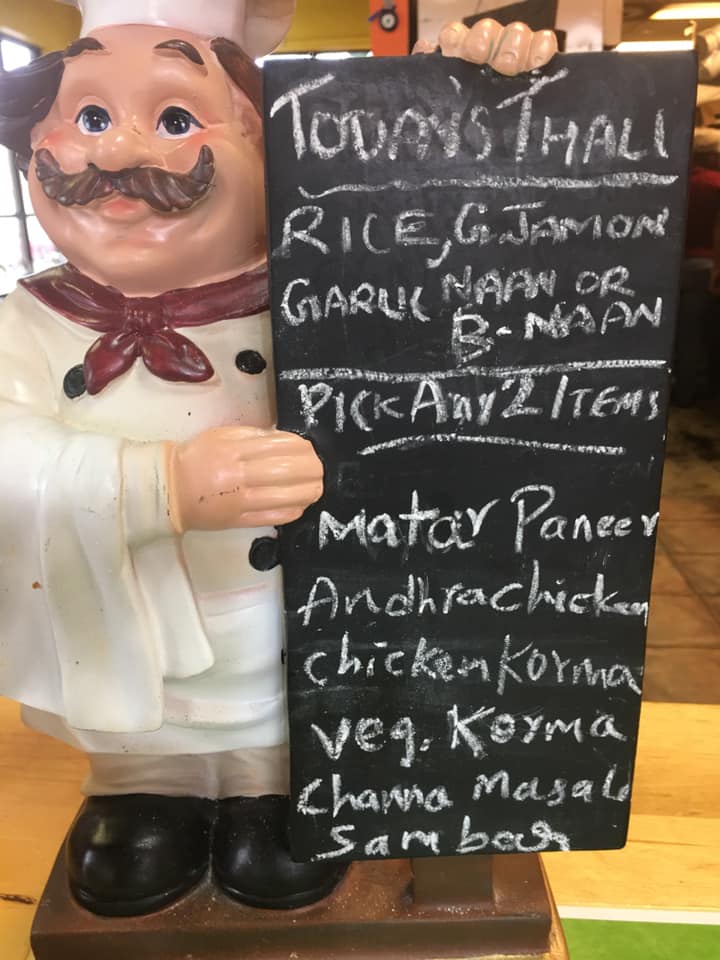 TODAY'S THALI
RICE, G.JAMON
GARLIC NAAN OR
B-NAAN
PICK Any 2 ITEMS
Matar Paneer
Andhra chicken
chicken Korma
veg. Korma
Channa Masala
Sambear